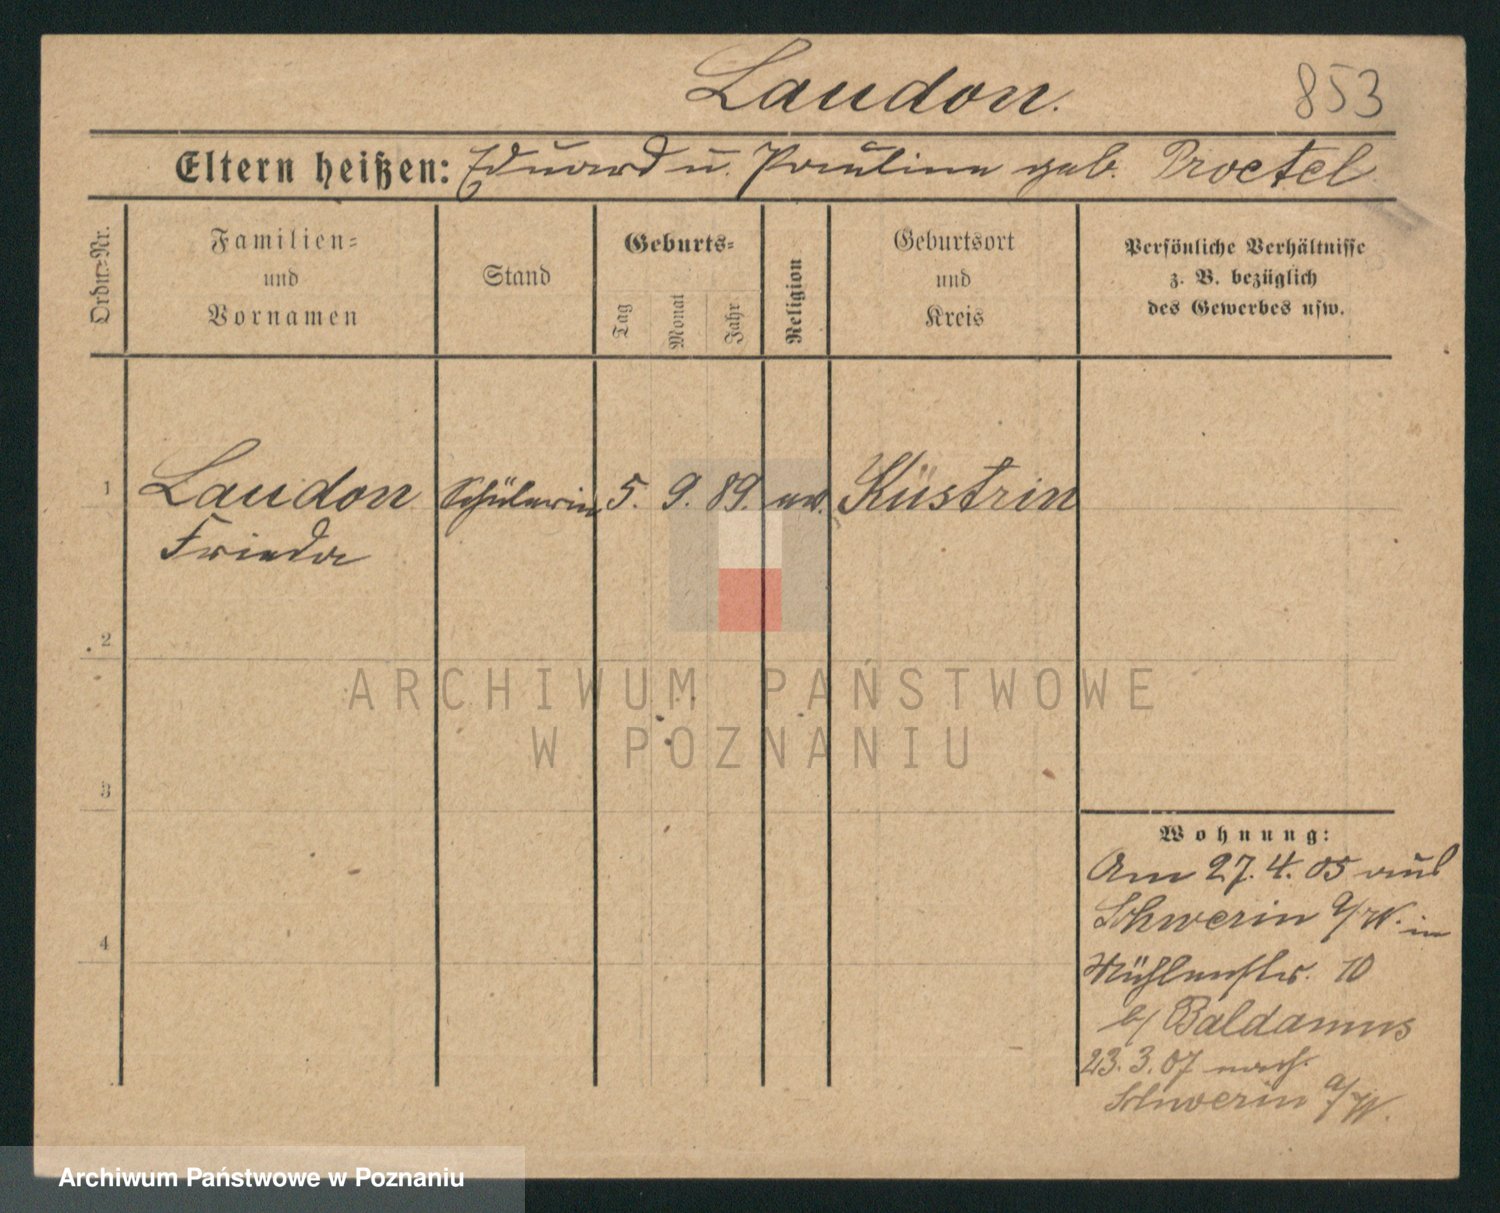 Laudon.
853
Eltern heißen: Eduard u. Pauline geb. Proetel
Ordn.-Nr.
Familien-
und
Vornamen
Stand
Geburts-
Tag
Monat
Jahr
Religion
Geburtsort
und
Kreis
Persönliche Verhältnisse
z. B. bezüglich
des Gewerbes usw.
1
Laudon
Frieda
Schülerin
5. 9. 89.
ev.
Küstrin
2
3
4
Wohnung:
Am 27. 4. 05 aus
Schwerin a/W. in
Mühlenstr. 10
b/ Baldamus
23. 3. 07 nach
Schwerin a/W.
ARCHIWUM PAŃSTWOWE
W POZNANIU
Archiwum Państwowe w Poznaniu